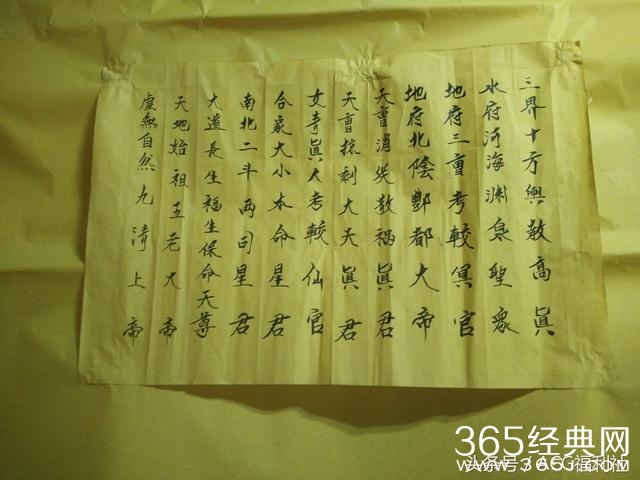 三界十方興教高真
水府河海淵泉聖眾
地府三曹考較冥官
地府北陰酆都大帝
天曹消災散禍真君
天曹掠剩大夫真君
女青真人考較仙官
合家大小本命星君
南北二斗兩司星君
大道長生福生保命天尊
天地始祖五老大帝
虛無自然九清上帝
365经典网
www.365
头条号
ACG福利社